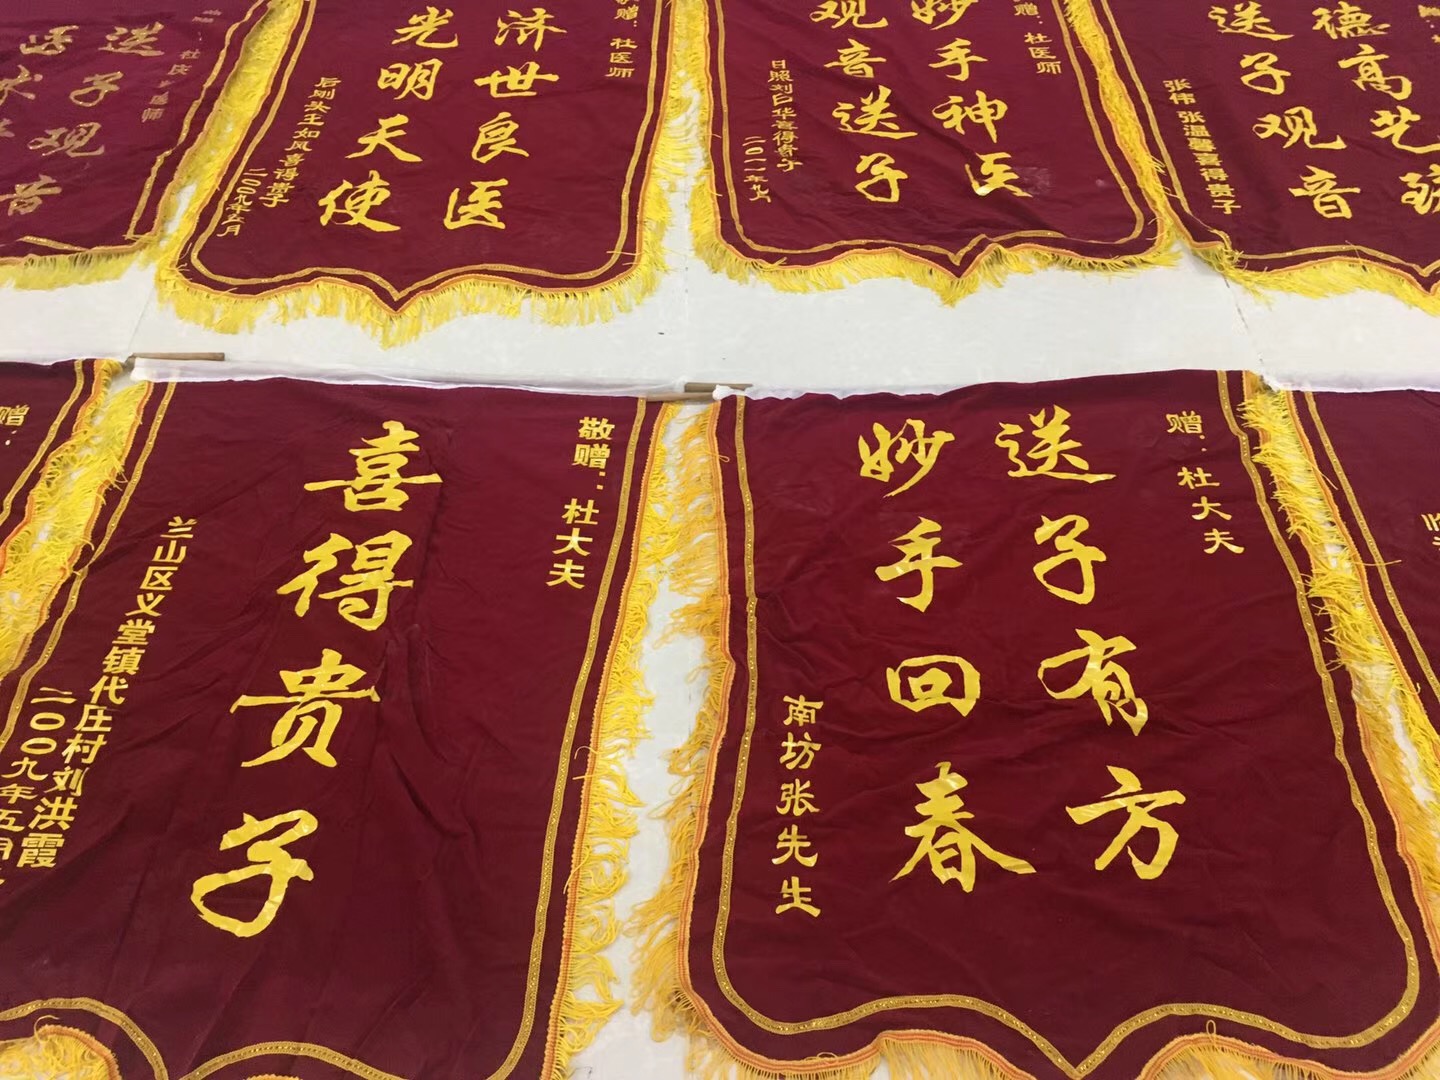 送子观音
济世良医
光明天使
赠：杜医师
喜得贵子
二〇〇九年五月
妙手神医
观音送子
赠：杜医师
日照刘
华喜得贵子
二〇一一年九月
德高艺
送子观音
张伟 张温馨喜得贵子
赠：
敬赠：杜大夫
喜得贵子
兰山区义堂镇代庄村刘洪霞
二〇〇九年五月
赠：杜大夫
送子有方
妙手回春
南坊张先生